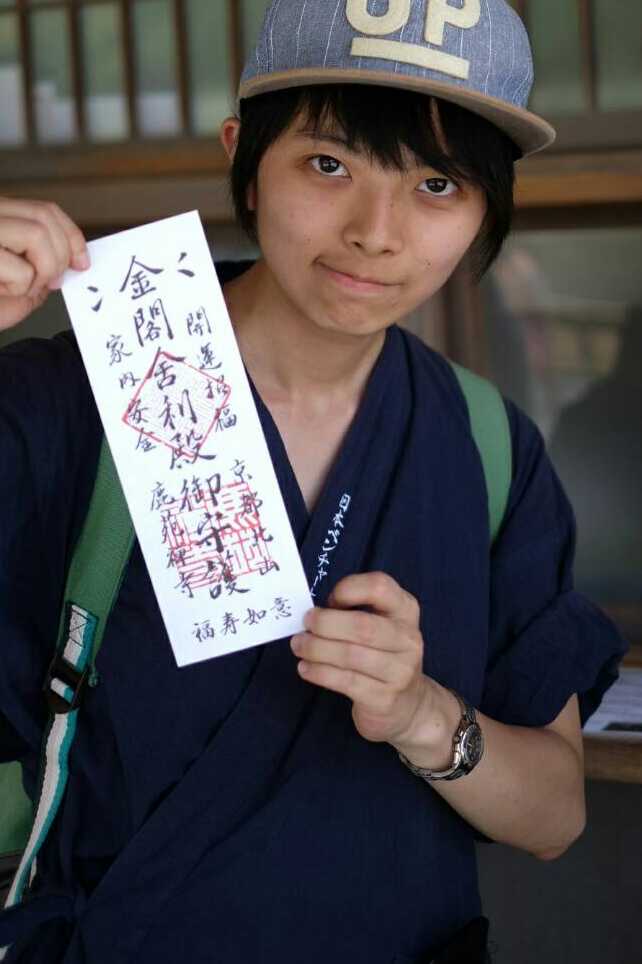 UP
開運招福
金閣舎利殿御守護
家内安全
京都北山
鹿苑禅寺
福寿如意